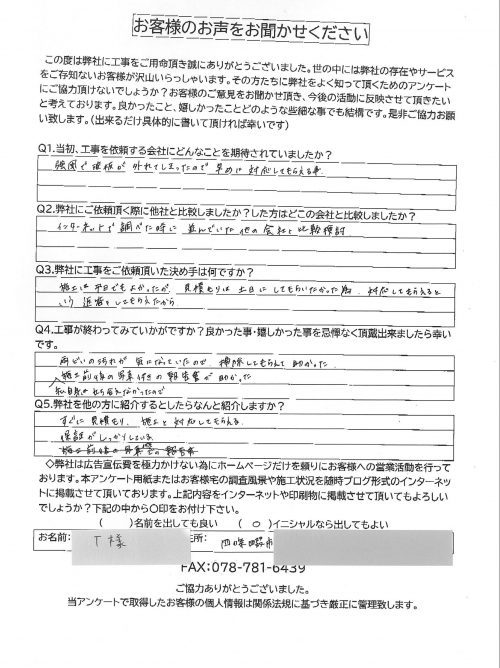 お客様のお声をお聞かせください
この度は弊社に工事をご用命頂き誠にありがとうございました。世の中には弊社の存在やサービス
をご存知ないお客様が沢山いらっしゃいます。その方たちに弊社をよく知って頂くためのアンケート
にご協力頂けないでしょうか？お客様のご意見をお聞かせ頂き、今後の活動に反映させて頂きたい
と考えております。良かったこと、嬉しかったことどのような些細な事でも結構です。是非ご協力お願
い致します。(出来るだけ具体的に書いて頂ければ幸いです)
Q1.当初、工事を依頼する会社にどんなことを期待されていましたか？
強風で破板が外れてしまったので 早めに対応してもらえる事
Q2.弊社にご依頼頂く際に他社と比較しましたか？した方はどこの会社と比較しましたか？
インターネットで調べた時に 並んでいた他の会社と比較検討
Q3.弊社に工事をご依頼頂いた決め手は何ですか？
施工は平日でもよかったが、見積もりは土日にしてもらいたかった為、対応してもらえると
いう返答をしてもらえたから
Q4.工事が終わってみていかがですか？良かった事・嬉しかった事を忌憚なく頂戴出来ましたら幸い
です。
雨どいの汚れが気になっていたので 掃除してもらえて助かった
施工前後の写真付きの報告書が助かった
私自身は立ち会えなかったので
Q5.弊社を他の方に紹介するとしたらなんと紹介しますか？
すぐに見積もり、施工と対応してもらえる
保証がしっかりしている
施工前後の写真での報告書
◇弊社は広告宣伝費を極力かけない為にホームページだけを頼りにお客様への営業活動を行って
おります。本アンケート用紙またはお客様宅の調査風景や施工状況を随時ブログ形式のインターネッ
トに掲載させて頂いております。上記内容をインターネットや印刷物に掲載させて頂いてもよろしい
でしょうか？下記の中から〇印をお付け下さい。
( )名前を出しても良い ( ○ )イニシャルなら出してもよい
お名前: T様 住所: 四條畷市
FAX:078-781-6439
ご協力ありがとうございました。
当アンケートで取得したお客様の個人情報は関係法規に基づき厳正に管理致します。